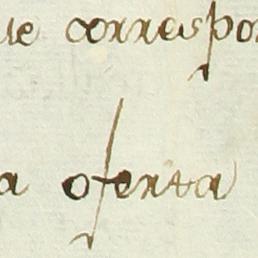 ue correspon
a oferta